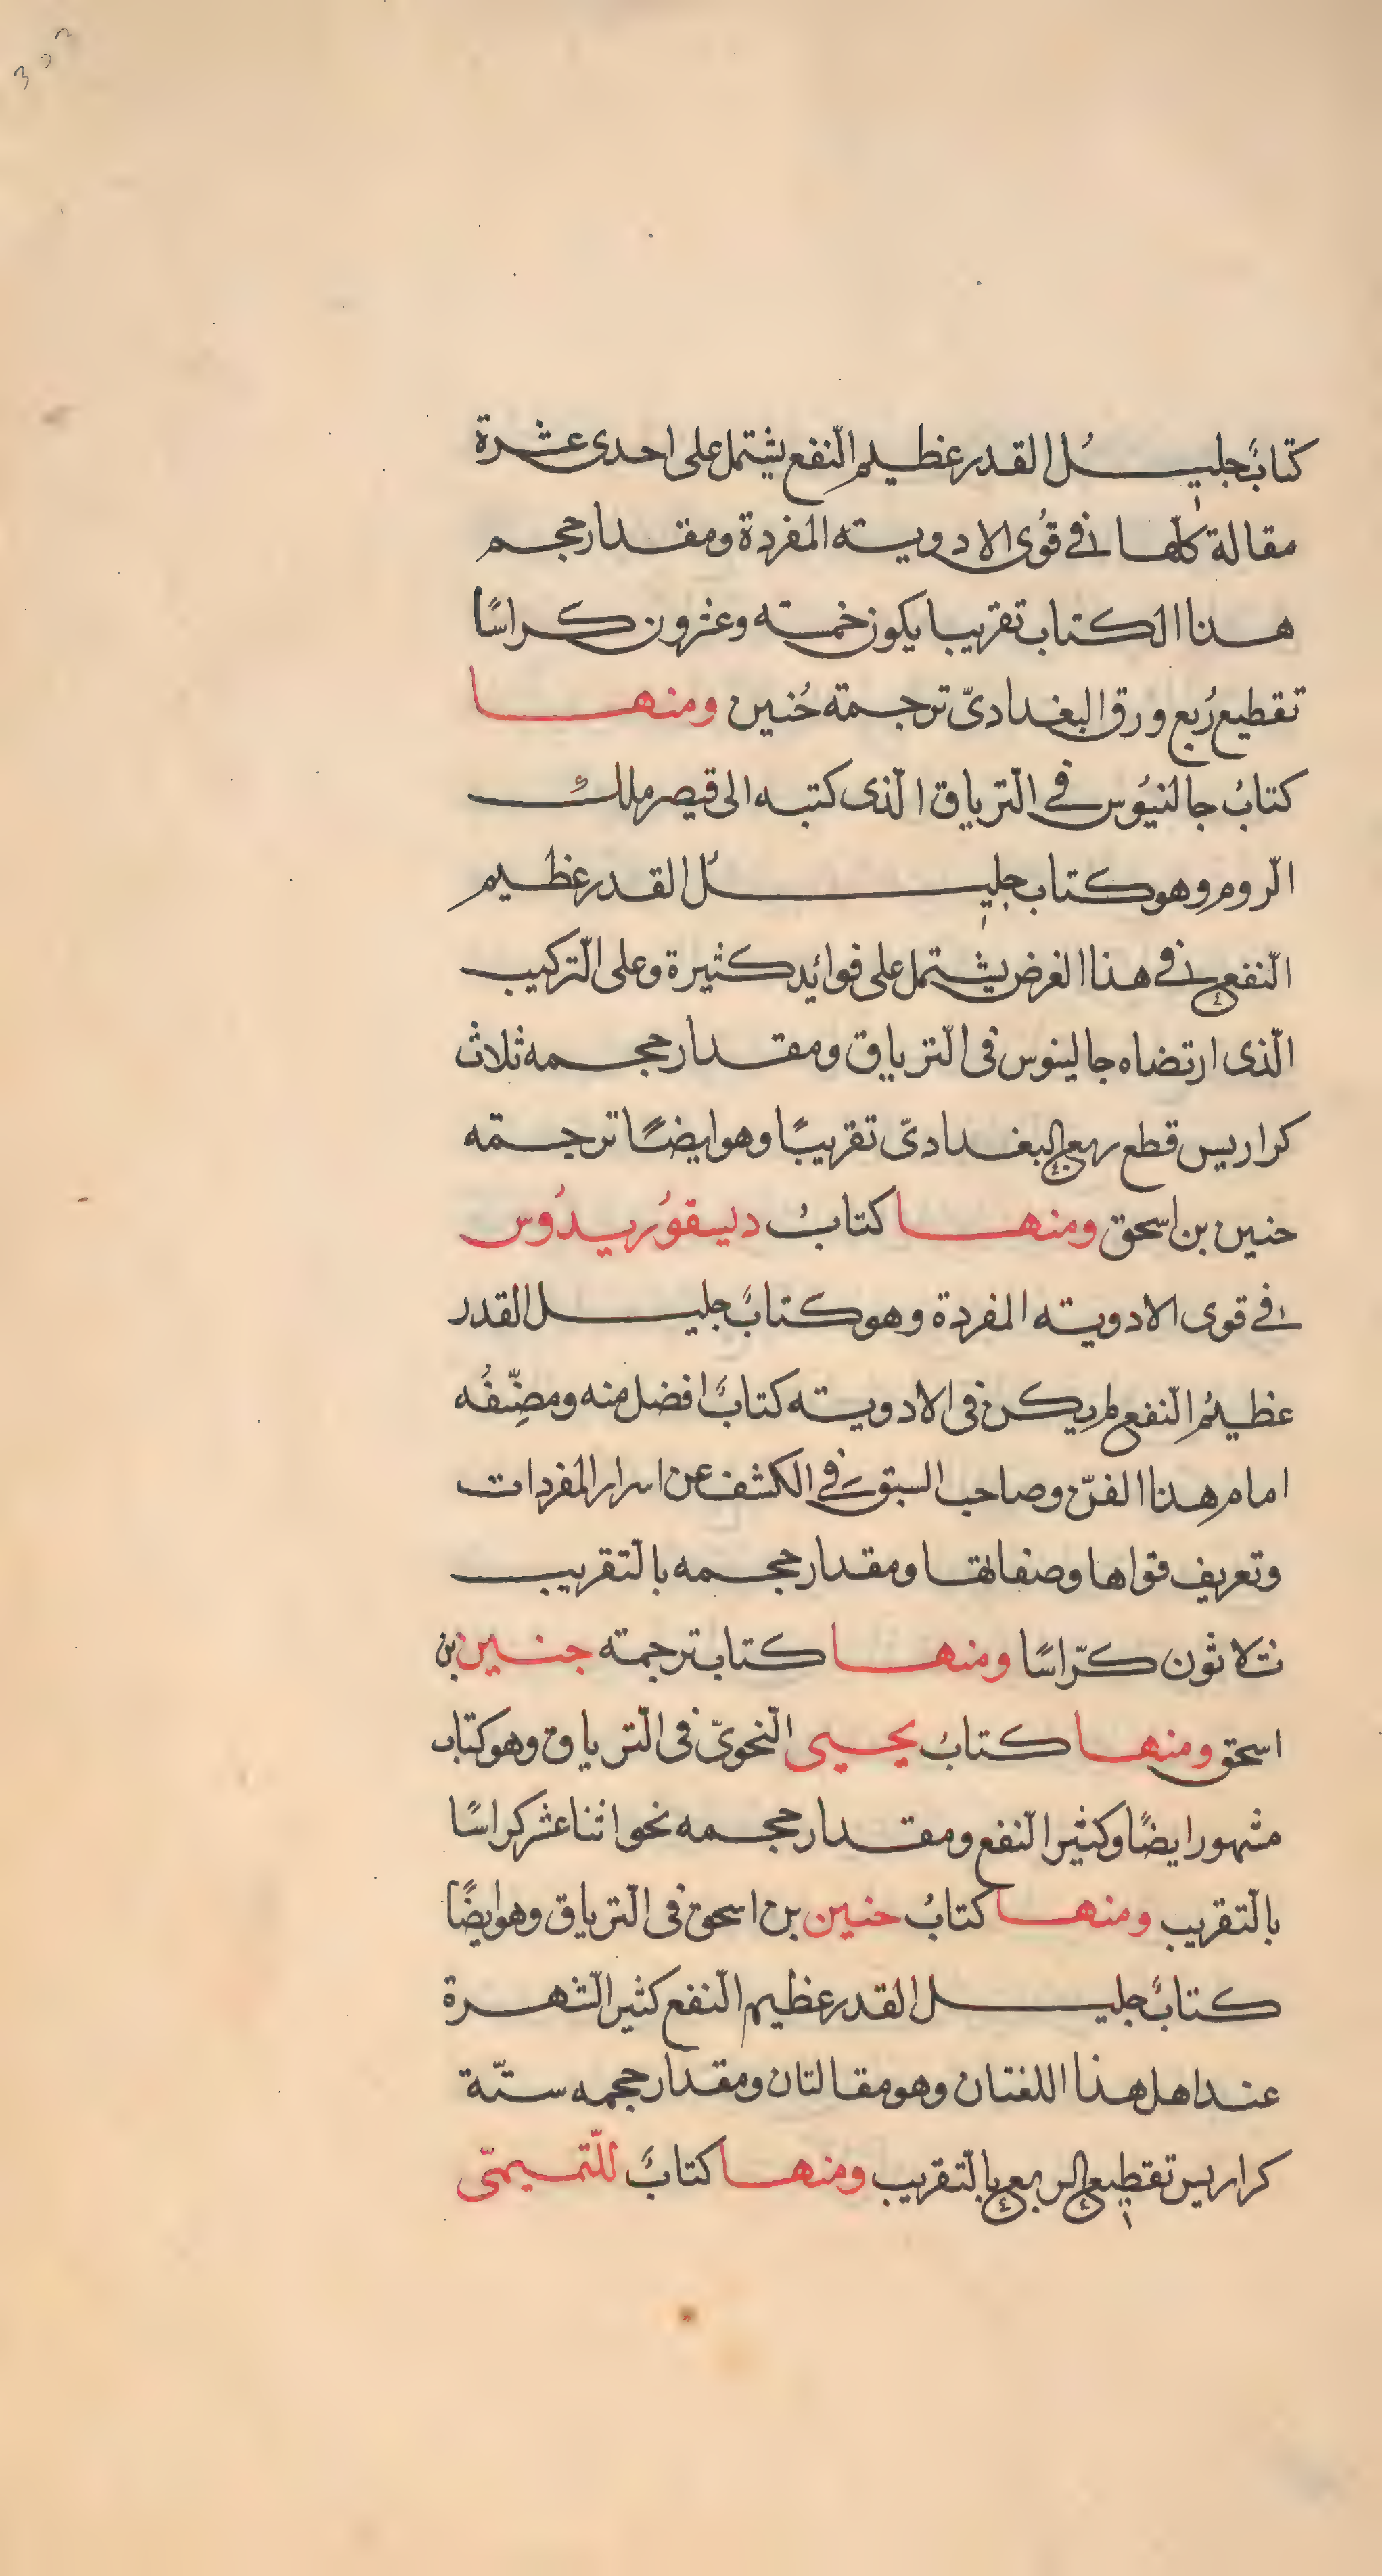 كتابٌ جليلُ القدر عظيم النّفع يشتمل على احدى عشرة
مقالة كلّها فى قُوى الادويته المفردة ومقدار حجم
هذا الكتاب تقريبا يكون خمسته وعشرون كراسًا
تقطيع رُبع ورق البغداديّ ترجمته حُنين ومنها
كتابُ جالنيُوس فى التّرياق الّذى كتبه الى قيصر ملك
الرّوم وهو كتاب جليلُ القدر عظيم
النّفع فى هذا الغرض يشتمل على فوائد كثيرة وعلى التّركيب
الّذى ارتضاه جالينوس فى التّرياق ومقدار حجمه ثلاث
كراريس قطع ربع البغداديّ تقريبًا وهو ايضًا ترجمته
حنين بن اسحق ومنها كتابُ ديسقوُريدُوس
فى قوى الادويته المفردة وهو كتابٌ جليل القدر
عظيمُ النّفع لم يكن فى الادويته كتابٌ افضل منه ومصنِّفُه
امام هذا الفنّ وصاحب السبق فى الكشف عن اسرار المفردات
وتعريف قواها وصفاتها ومقدار حجمه بالتّقريب
ثلاثون كرّاسًا ومنها كتاب ترجمته جنين بن
اسحق ومنها كتابُ يحيى النّحويّ فى التّرياق وهو كتاب
مشهور ايضًا وكثير النّفع ومقدار حجمه نحو اثنا عشر كراسًا
بالتّقريب ومنها كتابُ حنين بن اسحق فى التّرياق وهو ايضًا
كتابٌ جليل القدر عظيم النّفع كثير الشّهرة
عند اهل هذا اللفتان وهو مقالتان ومقدار حجمه ستّة
كراريس تقطيع الربع بالتّقريب ومنها كتابٌ للتّميميّ